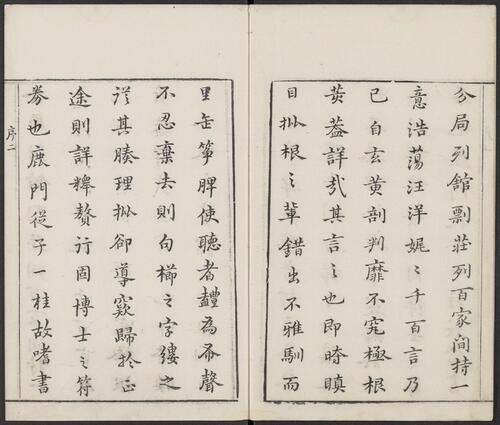 分局列館剽莊列百家間持一
意浩蕩汪洋娓〻千百言乃
已自玄黃剖判靡不究極根
荄蓋詳哉其言之也即晦瞋
目批根之軰錯出不雅馴而
里缶箏脾使聽者體為夼聲
不忍棄去則句櫛之字縷之
詳其腠理批卻導窾歸扵正
途則詳繹贅行固博士之符
券也鹿門從子一桂故嗜書
序二